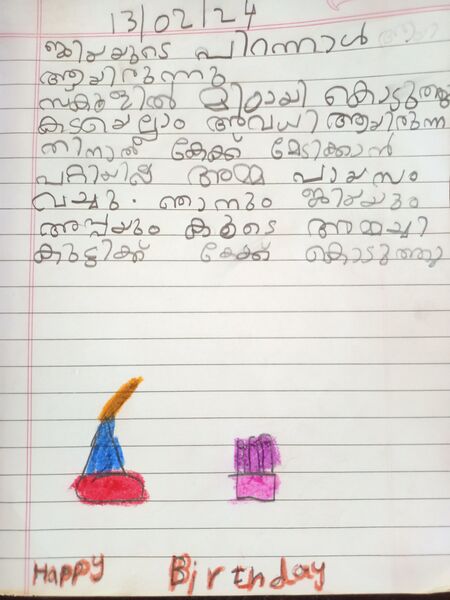 13/02/24
ജിയയുടെ പിറന്നാൾ
ആയിരുന്നു
സ്കൂളിൽ മിഠായി കൊടുത്തു
കടയെല്ലാം അവധി ആയിരുന്ന
തിനാൽ കേക്ക് മേടിക്കാൻ
പറ്റിയില്ല അമ്മ പായസം
വച്ചു. ഞാനും ജിയയും
അപ്പയും കൂടെ അമ്മച്ചി
കുട്ടിക്ക് കേക്ക് കൊടുത്തു
Happy Birthday